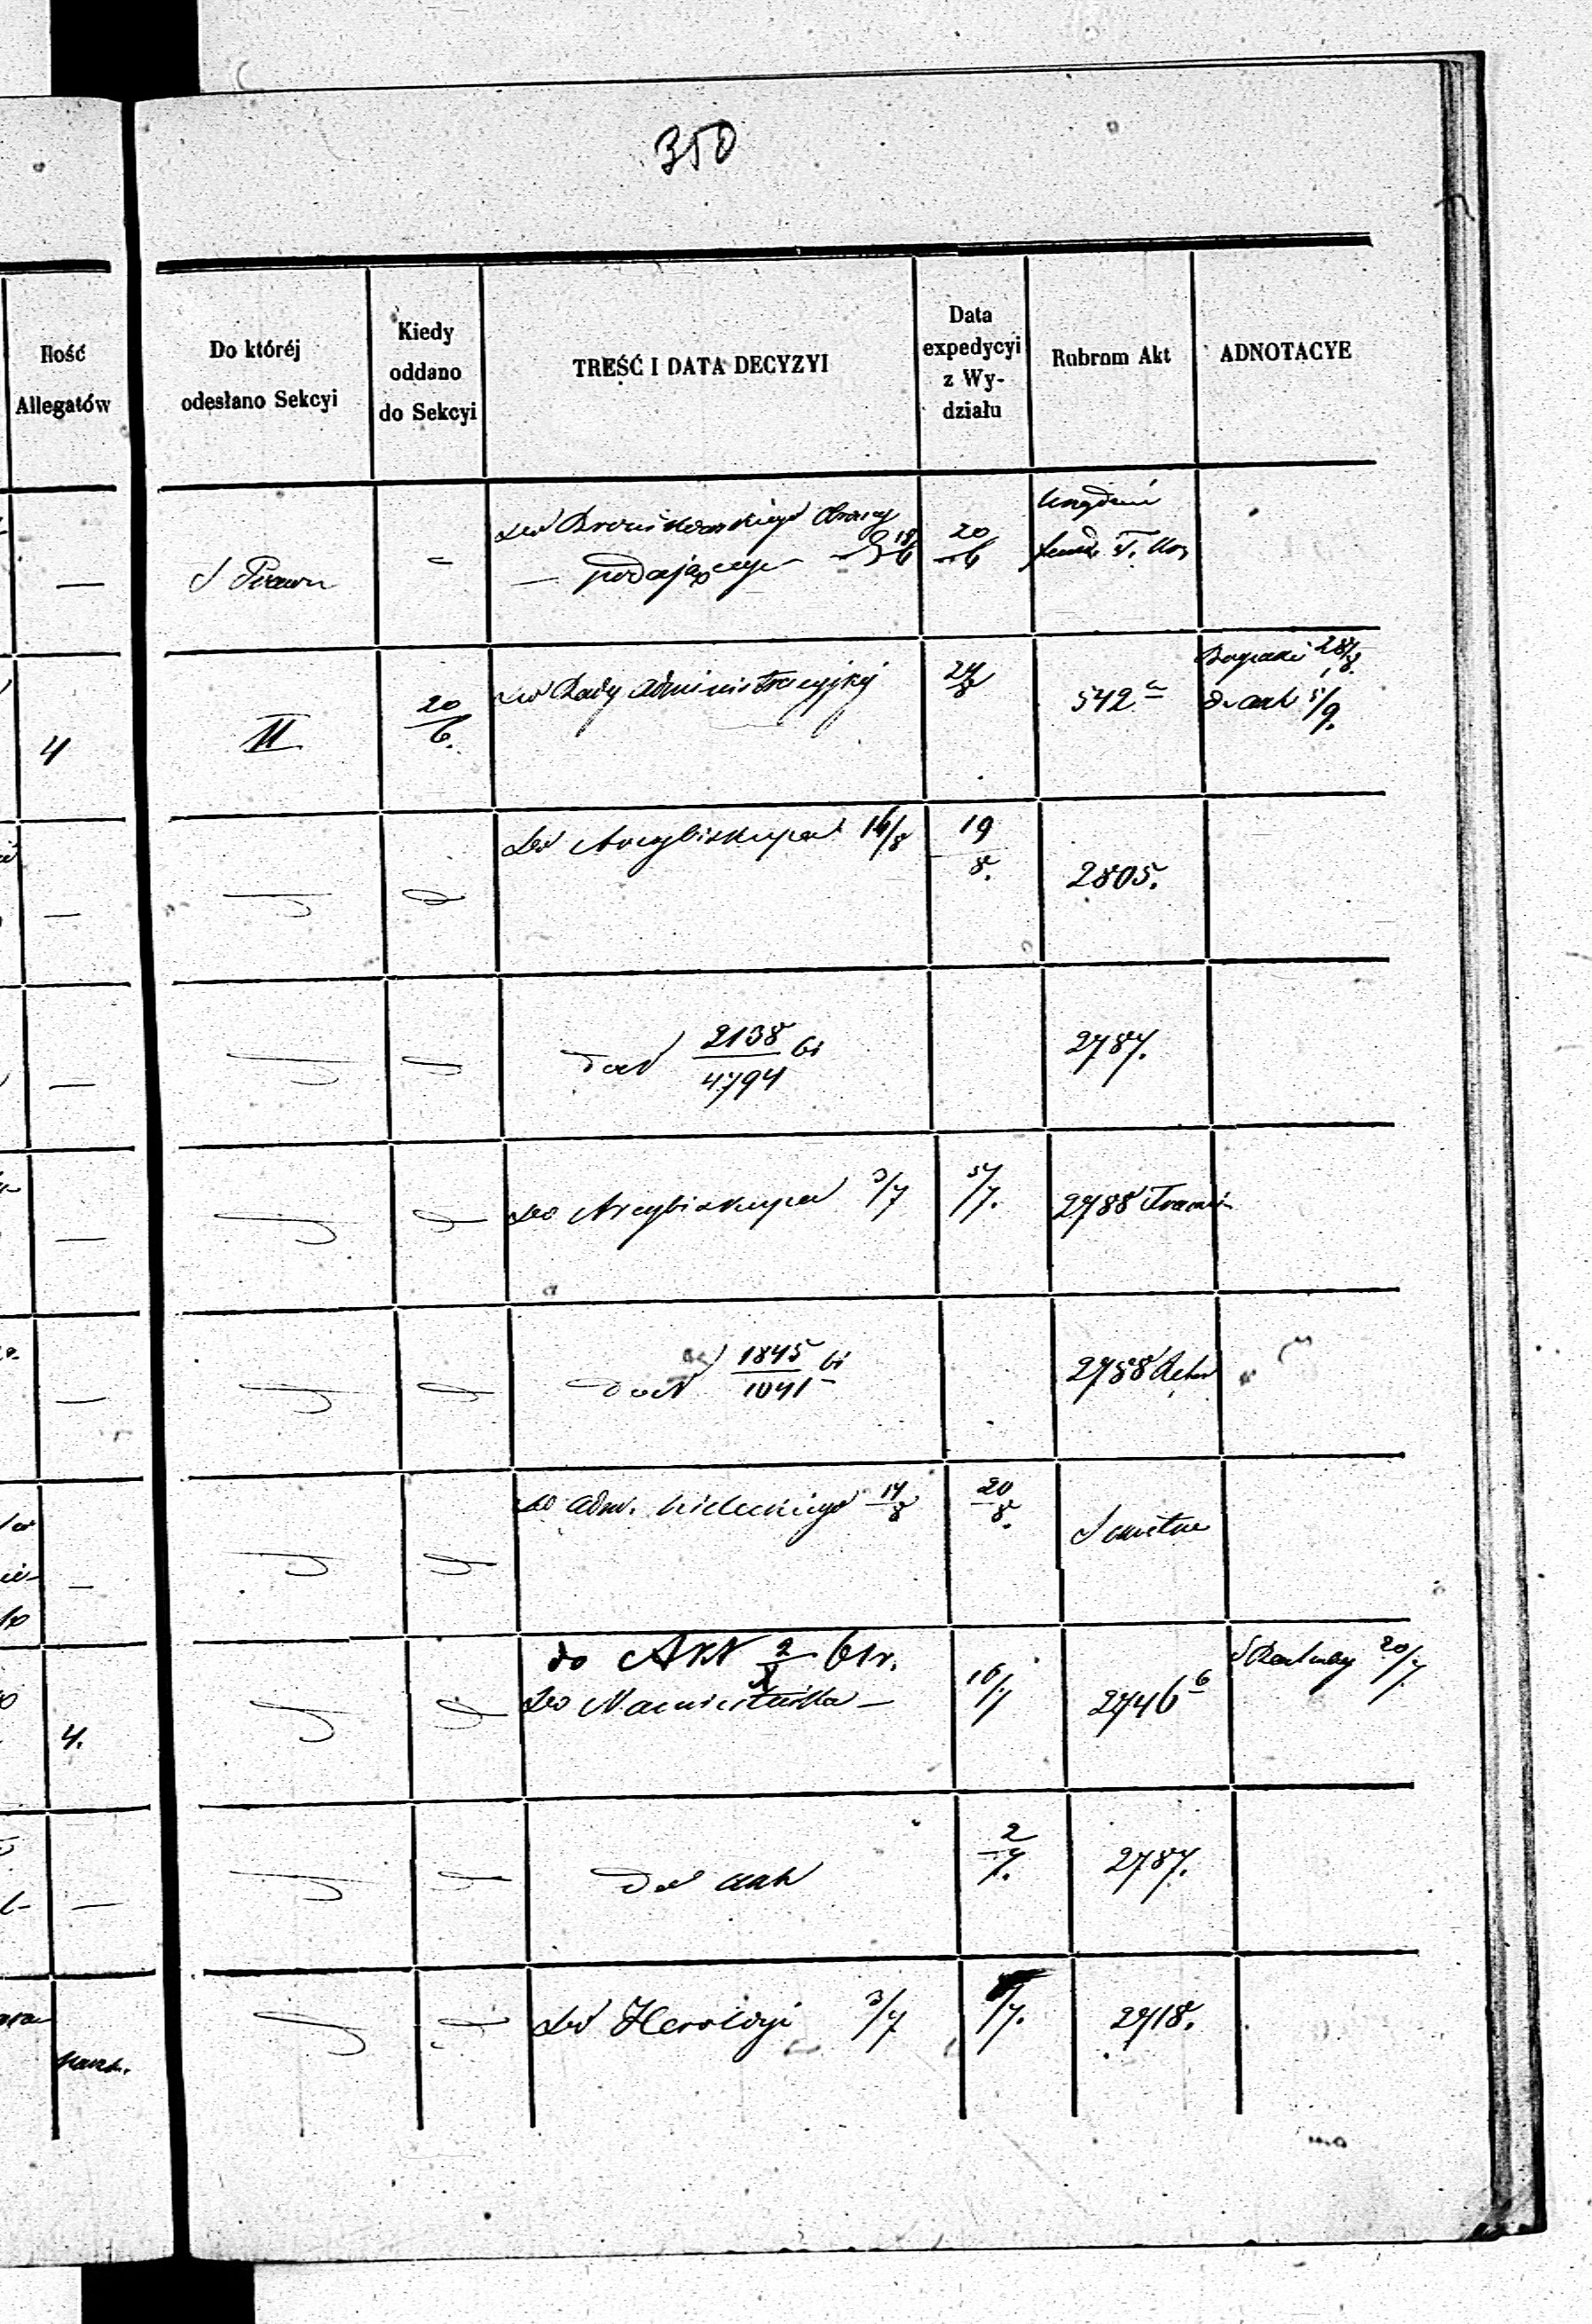 350
Ilość
Allegatów
Do któréj
odesłano Sekcyi
Kiedy
oddano
do Sekcyi
TREŚĆ I DATA DECYZYI
Data
expedycyi
z Wy-
działu
Rubrum Akt
ADNOTACYE
podającego
20
6
4
II
20
6.
Do Rady Administracyjnej
24/8
542 a
do akt 5/9.
Do Arcybiskupa 16/8
19
8.
2805.
—
do N 2138/4794 61
2787.
—
Do Arcybiskupa 3/7
5/7.
2788
—
do N 1845/1041 61
2788
—
Do Adm. Kieleckiego 14/8
20
8.
—
do Akt 2/X 61 r.
Do Namiestnika —
16/7
2746 b
20/7
4.
do akt
2
7.
2787.
—
Do Heroldyi 3/7
/7.
2718.